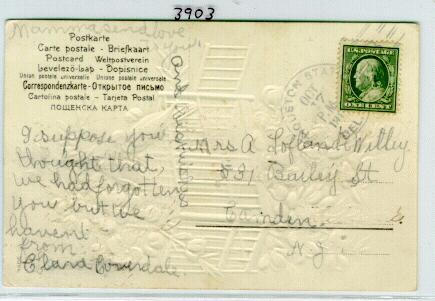 3903
Mamma send love
to you
and thanks
Postkarte
Carte postale - Briefkaart
Postcard Weltpostverein
Levelező-Lap - Dopisnice
Union postale universelle Unione postale universale
Correspondenzkarte - Открытое письмо
Cartolina postale - Tarjeta Postal
ПОЩЕНСКА КАРТА
U.S. POSTAGE
ONE CENT
STAT
OCT
7
PM
DEL.
I suppose you
thought that,
we had forgotten
you but we
havent
from
Clara Coverdale.
Mrs A Lofland Willey
531 Bailey St
Camden
N. J.